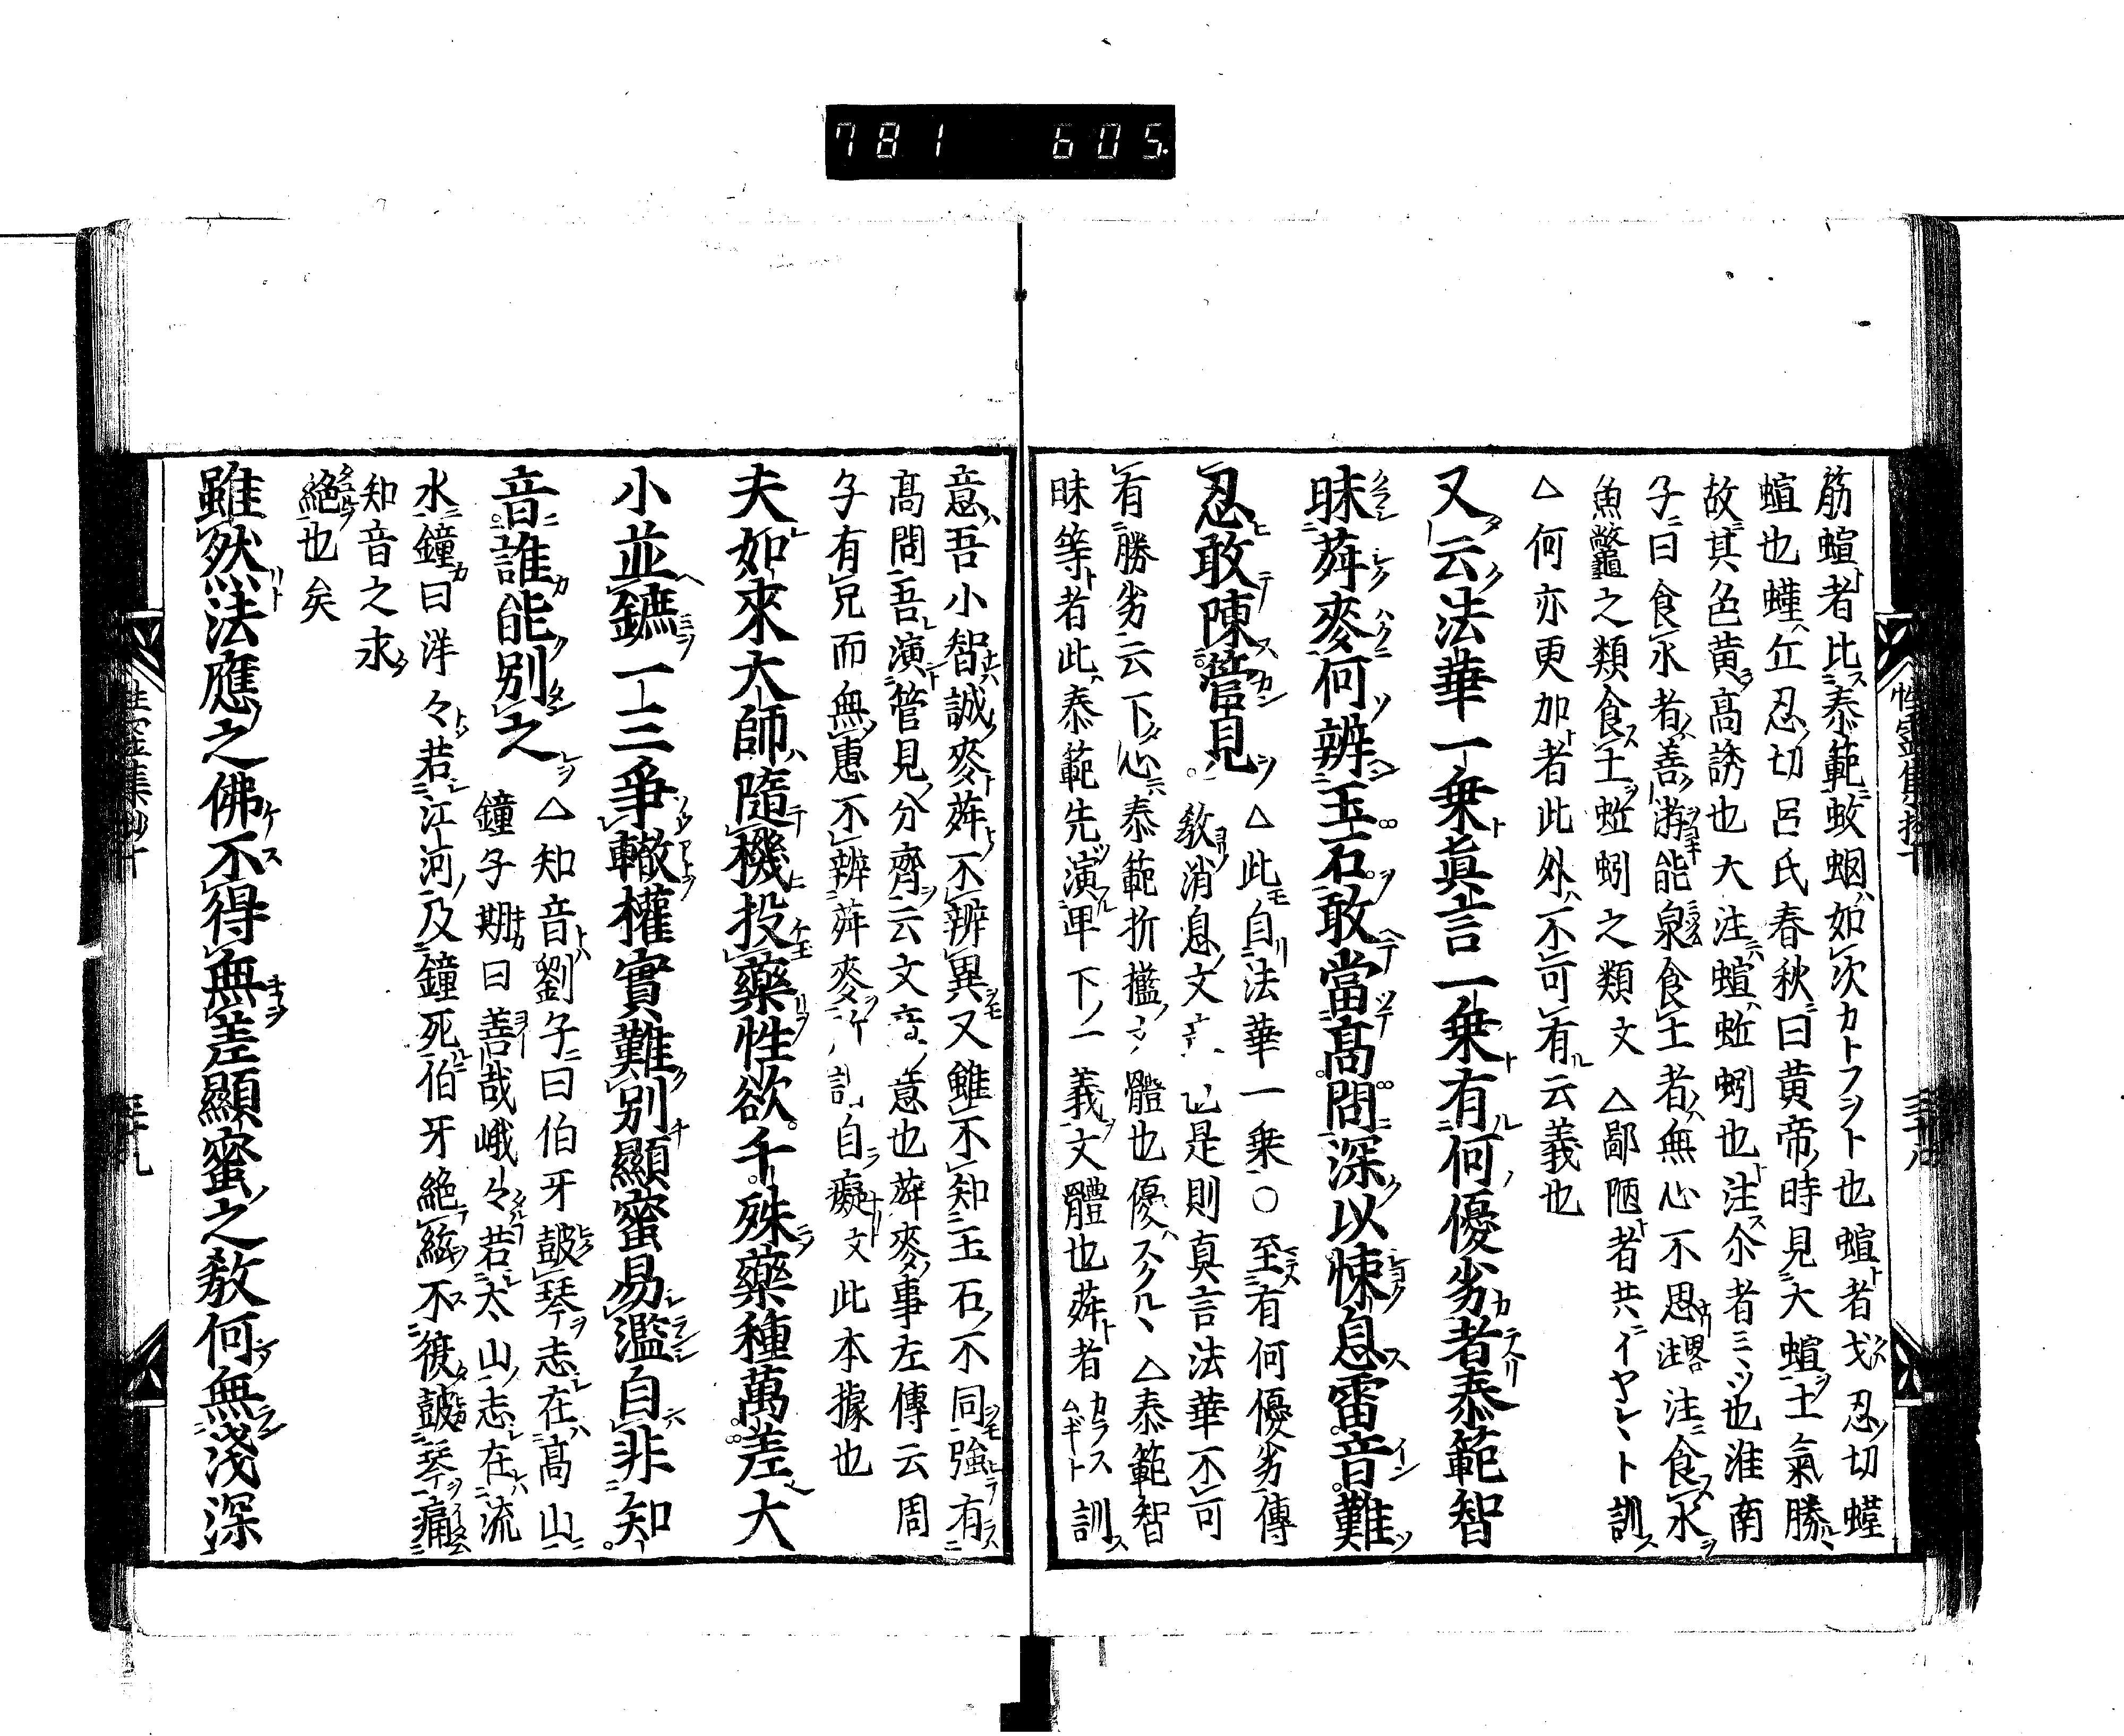 781 605.
筋螾者比泰範蚊蛔如次カトフヲト也螾者弋忍切螼
螾也螼丘忍切呂氏春秋曰黄帝時見大螾土氣勝
故其色黄髙誘也大注螾蚯蚓也注尒者ミヽツ也淮南
子曰食水者善游能泉食土者無心不思注畧注食水
魚鼈之類食土蚯蚓之類文△鄙陋者共イヤシヽト訓
△何亦更加者此外不可有云義也
又云法華一乗真言一乗有何優劣者泰範智
昧菽麥何辨玉石敢當髙問深以悚息雷音難
忍敢陳管見△此自法華一乗○至有何優劣傳
教消息文是則真言法華不可
有勝劣云下心泰範折檻體也優スクルヽ△泰範智
昧等者此泰範先演卑下ノ一義文體也菽者カラスムギト訓
意吾小智誠麥菽不辨異又雖不知玉石不同強有
髙問吾演管見分齊云文意也菽麥事左傳云周
子有兄而無惠不辨菽麥自癡文此本據也
夫如來大師隨機投藥性欲千殊藥種萬差大
小並鑣一三爭轍權實難別顯蜜易濫自非知
音誰能別之△知音劉子曰伯牙皷琴志在髙山
鐘子期曰善哉峨々若太山志在流
水鐘曰洋々若江河及鐘死伯牙絶絃不復皷琴痛
知音之永
絶也矣
雖然法應之佛不得無差顯蜜之教何無淺深